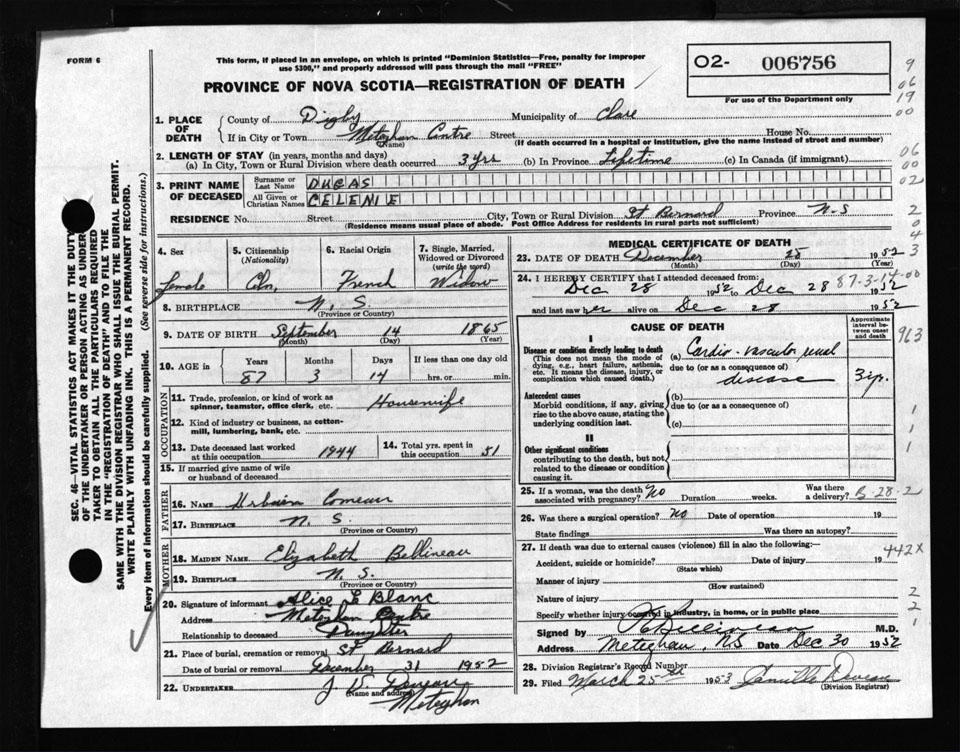 FORM 6
This form, if placed in an envelope, on which is printed "Dominion Statistics—Free, penalty for improper
use $300," and properly addressed will pass through the mail "FREE"
PROVINCE OF NOVA SCOTIA—REGISTRATION OF DEATH
O2- 006756
For use of the Department only
9
06
19
00
06
00
02
2
0
4
3
1. PLACE OF DEATH
County of Digby Municipality of Clare
If in City or Town Meteghan Centre Street House No.
(Name) (If death occurred in a hospital or institution, give the name instead of street and number)
2. LENGTH OF STAY (in years, months and days)
(a) In City, Town or Rural Division where death occurred 3 yrs (b) In Province Lifetime (c) In Canada (if immigrant)
3. PRINT NAME OF DECEASED
Surname or Last Name DUGAS
All Given or Christian Names CELENIE
RESIDENCE No. Street City, Town or Rural Division St Bernard Province N.S
(Residence means usual place of abode. Post Office Address for residents in rural parts not sufficient)
4. Sex Female
5. Citizenship (Nationality) Cdn,
6. Racial Origin French
7. Single, Married, Widowed or Divorced (write the word) Widow
8. BIRTHPLACE N. S.
(Province or Country)
9. DATE OF BIRTH September 14 1865
(Month) (Day) (Year)
10. AGE in Years Months Days If less than one day old
87 3 14 hrs. or min.
OCCUPATION
11. Trade, profession, or kind of work as spinner, teamster, office clerk, etc. Housewife
12. Kind of industry or business, as cotton-mill, lumbering, bank, etc.
13. Date deceased last worked at this occupation 1944
14. Total yrs. spent in this occupation 51
15. If married give name of wife or husband of deceased
FATHER
16. NAME Urbain Comeau
17. BIRTHPLACE N. S.
(Province or Country)
MOTHER
18. MAIDEN NAME Elizabeth Bellineau
19. BIRTHPLACE N. S.
(Province or Country)
20. Signature of informant Alice Le Blanc
Address Meteghan Centre
Relationship to deceased Daughter
21. Place of burial, cremation or removal St Bernard
Date of burial or removal December 31 1952
22. UNDERTAKER
(Name and address)
Meteghan
MEDICAL CERTIFICATE OF DEATH
23. DATE OF DEATH December 28 1952
(Month) (Day) (Year)
24. I HEREBY CERTIFY that I attended deceased from: 87-3-14-00
Dec 28 1952 to Dec 28 1952
and last saw her alive on Dec 28 1952
CAUSE OF DEATH
Approximate interval between onset and death
963
I
Disease or condition directly leading to death
(This does not mean the mode of dying, e.g., heart failure, asthenia, etc. It means the disease, injury, or complication which caused death.)
(a) Cardio-vascular renal
due to (or as a consequence of)
disease 3 yrs.
Antecedent causes
Morbid conditions, if any, giving rise to the above cause, stating the underlying condition last.
(b)
due to (or as a consequence of)
(c)
1
1
1
II
Other significant conditions
contributing to the death, but not related to the disease or condition causing it.
25. If a woman, was the death associated with pregnancy? No Duration weeks. Was there a delivery? B-28-2
26. Was there a surgical operation? No Date of operation 19
State findings Was there an autopsy?
27. If death was due to external causes (violence) fill in also the following: 442X
Accident, suicide or homicide? Date of injury 19
(State which)
Manner of injury
(How sustained)
Nature of injury
Specify whether injury occurred in industry, in home, or in public place
2
2
1
Signed by M.D.
Address Meteghan, N.S Date Dec 30 1952
28. Division Registrar's Record Number
29. Filed March 25th 1953
(Division Registrar)
SEC. 46—VITAL STATISTICS ACT MAKES IT THE DUTY
OF THE UNDERTAKER OR PERSON ACTING AS UNDER-
TAKER TO OBTAIN ALL THE PARTICULARS REQUIRED
IN THE "REGISTRATION OF DEATH" AND TO FILE THE
SAME WITH THE DIVISION REGISTRAR WHO SHALL ISSUE THE BURIAL PERMIT.
WRITE PLAINLY WITH UNFADING INK. THIS IS A PERMANENT RECORD.
Every item of information should be carefully supplied. (See reverse side for instructions.)